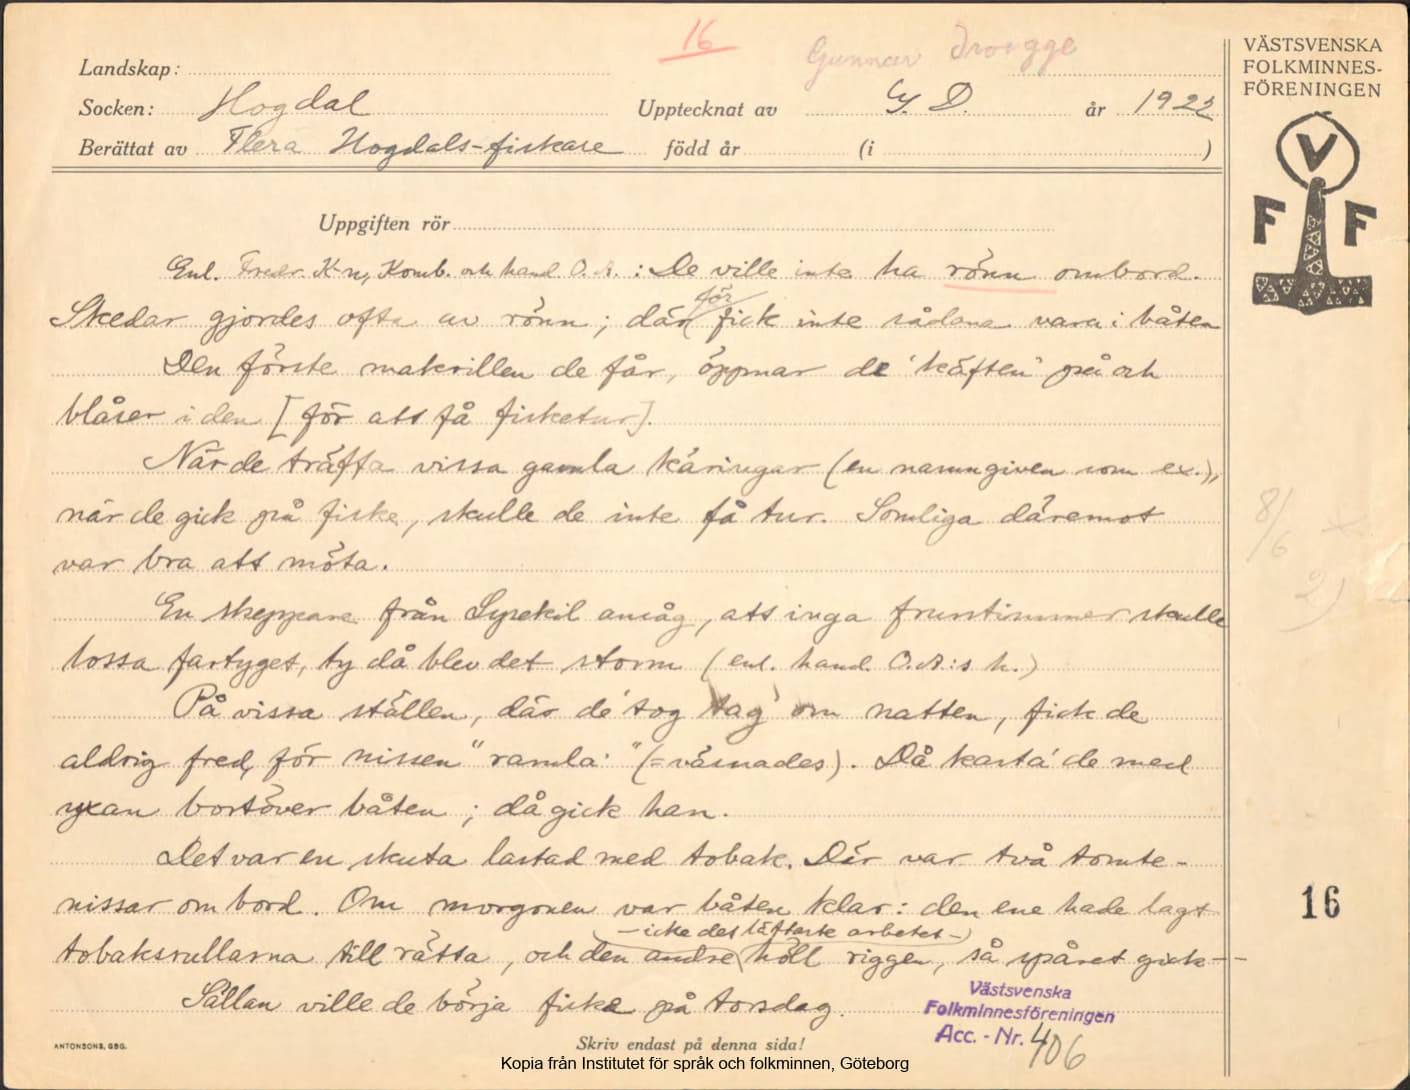 16
Gunnar Drougge
Landskap:
Socken: Hogdal Upptecknat av G. D. år 1922
Berättat av Flera Hogdals-fiskare född år (i )
Uppgiften rör
Enl. Fredr. K-n, Komb. och hand O. A. : De ville inte ha rönn ombord.
för
Skedar gjordes ofta av rönn; där fick inte sådana vara i båten
Den förste makrillen de får, öppnar de 'käften' på och
blåser i den [för att få fisketur].
När de träffa vissa gamla käringar (en namngiven som ex.),
när de gick på fiske, skulle de inte få tur. Somliga däremot
var bra att möta.
En skeppare från Lysekil ansåg, att inga fruntimmer skulle
lossa fartyget, ty då blev det storm (enl. hand. O.A:s h.)
På vissa ställen, där de 'tog tag' om natten, fick de
aldrig fred, för nissen "ramla'" (= väsnades). Då kasta' de med
yxan bortöver båten; då gick han.
Det var en skuta lastad med tobak. Där var två tomte-
nissar ombord. Om morgonen var båten klar: den ene hade lagt
- icke det lättaste arbetet -
tobaksrullarna till rätta, och den andre höll riggen, så spåret gick--
Sällan ville de börja fiska på torsdag.
Skriv endast på denna sida!
ANTONSONS, GBG.
Västsvenska
Folkminnesföreningen
Acc. - Nr. 406
VÄSTSVENSKA
FOLKMINNES-
FÖRENINGEN
V
F F
8/6
2)
16
Kopia från Institutet för språk och folkminnen, Göteborg